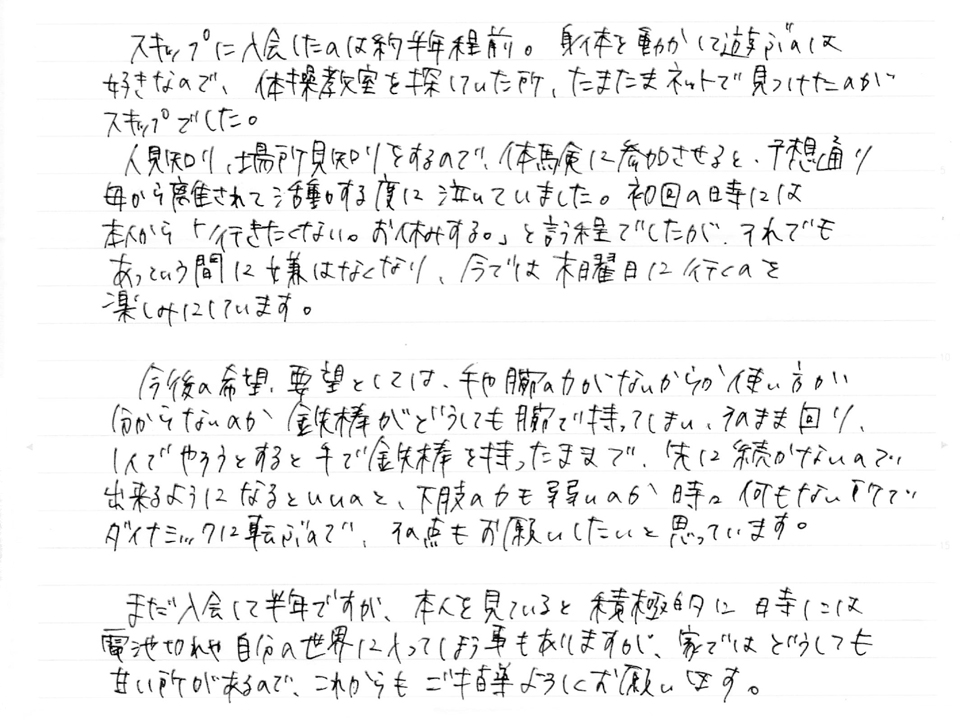 スキップに入会したのは約半年程前。身体を動かして遊ぶのは
好きなので、体操教室を探していた所、たまたまネットで見つけたのが
スキップでした。
人見知り、場所見知りをするので、体験に参加させると、予想通り
母から離されて活動する度に泣いていました。初回の時には
本人から「行きたくない。お休みする。」と言う程でしたが、それでも
あっという間に嫌はなくなり、今では木曜日に行くのを
楽しみにしています。
今後の希望、要望としては、手や腕の力がないからか使い方が
分からないのか鉄棒がどうしても腕で持ってしまい、そのまま回り、
1人でやろうとすると手で鉄棒を持ったままで、先に続かないので
出来るようになるといいのと、下肢の力も弱いのか時に何もない所で
ダイナミックに転ぶので、その点もお願いしたいと思っています。
まだ入会して半年ですが、本人を見ていると積極的な時には
電池切れや自分の世界に入ってしまう事もありますが、家ではどうしても
甘い所があるので、これからもご指導よろしくお願いします。